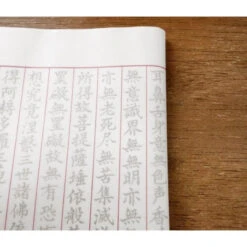 耳鼻舌身意無色声香
無意識界無無明亦無
無老死尽無苦集滅道
所得故菩提薩埵依般若
罣礙無罣礙故無有恐
想究竟涅槃三世諸佛
得阿耨多羅三